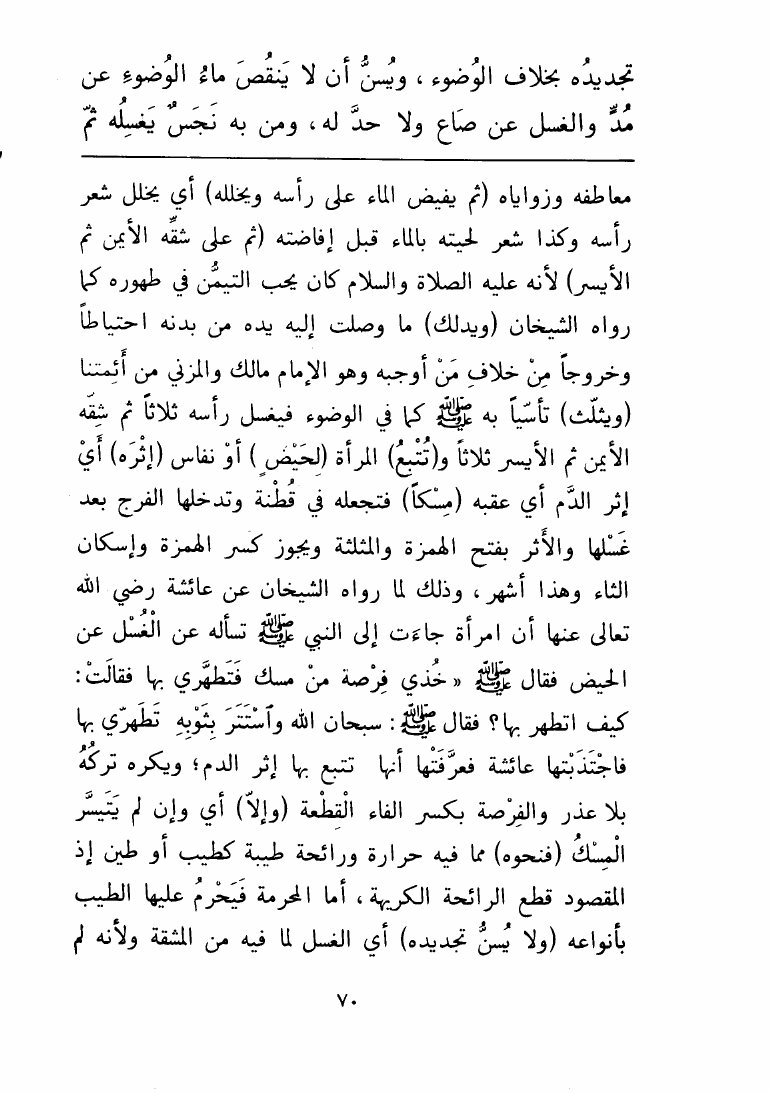 تجديدُه بخلاف الوُضوء ، ويُسنُّ أن لا يَنقُصَ ماءُ الوُضوءِ عن
مُدٍّ والغسل عن صَاع ولا حدَّ له ، ومن به نَجَسٌ يَغسِلُه ثمّ
معاطفه وزواياه (ثم يفيض الماء على رأسه ويخلله) أي يخلل شعر
رأسه وكذا شعر لحيته بالماء قبل إفاضته (ثم على شقِّه الأيمن ثم
الأيسر) لأنه عليه الصلاة والسلام كان يحب التيمُّن في طهوره كما
رواه الشيخان (ويدلك) ما وصلت إليه يده من بدنه احتياطاً
وخروجاً مِنْ خلافِ مَنْ أوجبه وهو الإمام مالك والمزني من أَئِمتنا
(ويثلّث) تأسّياً به ﷺ كما في الوضوء فيغسل رأسه ثلاثاً ثم شِقّه
الأيمن ثم الأيسر ثلاثاً و(تُتْبعُ) المرأة (لِحَيْضٍ) أوْ نفاس (إثْرَه) أَيْ
إثر الدَّم أي عقبه (مِسْكاً) فتجعله في قُطْنة وتدخلها الفرج بعد
غَسْلها والأَثر بفتح الهمزة والمثلثة ويجوز كسر الهمزة وإسكان
الثاء وهذا أشهر ، وذلك لما رواه الشيخان عن عائشة رضي الله
تعالى عنها أن امرأة جاءَت إلى النبي ﷺ تسأله عن الْغُسْل عن
الحيض فقال ﷺ « خُذي فِرْصة منْ مسك فَتَطهَّري بها فقالَتْ :
كيف اتطهر بها؟ فقال ﷺ : سبحان الله وٱسْتَتَرَ بِثَوْبِهِ تَطَهرّي بها
فاجْتَذَبْتها عائشة فعرَّفَتْها أنها تتبع بها إثر الدم؛ ويكره تركُهُ
بلا عذر والفِرْصة بكسر الفاء الْقِطْعة (وإلاّ) أي وإن لم يَتَيسَّر
الْمِسْكُ (فنحوه) مما فيه حرارة ورائحة طيبة كطيب أو طين إذ
المقصود قطع الرائحة الكريهة ، أما المحرمة فَيَحْرمُ عليها الطيب
بأنواعه (ولا يُسنُّ تجديده) أي الغسل لما فيه من المشقة ولأنه لم
٧٠